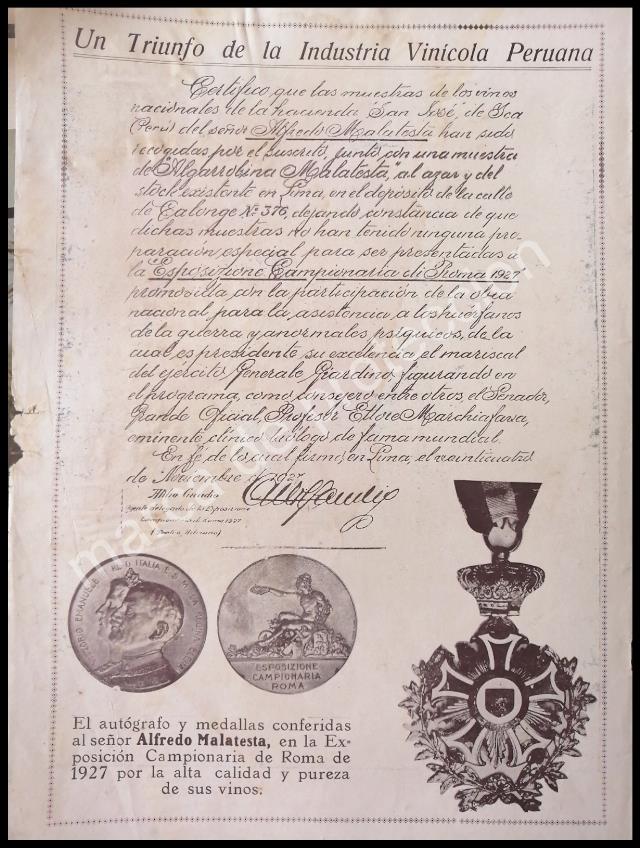 Un Triunfo de la Industria Vinícola Peruana
Certifico que las muestras de los vinos
nacionales de la hacienda "San José", de Ica
(Perú) del señor Alfredo Malatesta han sido
recogidas por el suscrito, junto con una muestra
de "Algarrobina Malatesta," al azar y del
stock existente en Lima, en el depósito de la calle
de Calonge Nº 376, dejando constancia de que
dichas muestras no han tenido ninguna pre-
paración especial para ser presentadas a
la Esposizione Campionaria di Roma 1927
promovida con la participación de la obra
nacional para la asistencia a los huérfanos
de la guerra y anormales psíquicos, de la
cual es presidente su excelencia el mariscal
del ejército, Generale Giardino, figurando en
el programa, como consejero entre otros, el Senador,
Grande Oficial, Profesor Ettore Marchiafava,
eminente clínico biólogo de fama mundial.
En fé de lo cual firmo, en Lima, el veinticuatro
de Noviembre de 1927
delegado de la Esposizione
Campionaria di Roma 1927
ESPOSIZIONE
CAMPIONARIA
ROMA
El autógrafo y medallas conferidas
al señor Alfredo Malatesta, en la Ex-
posición Campionaria de Roma de
1927 por la alta calidad y pureza
de sus vinos.